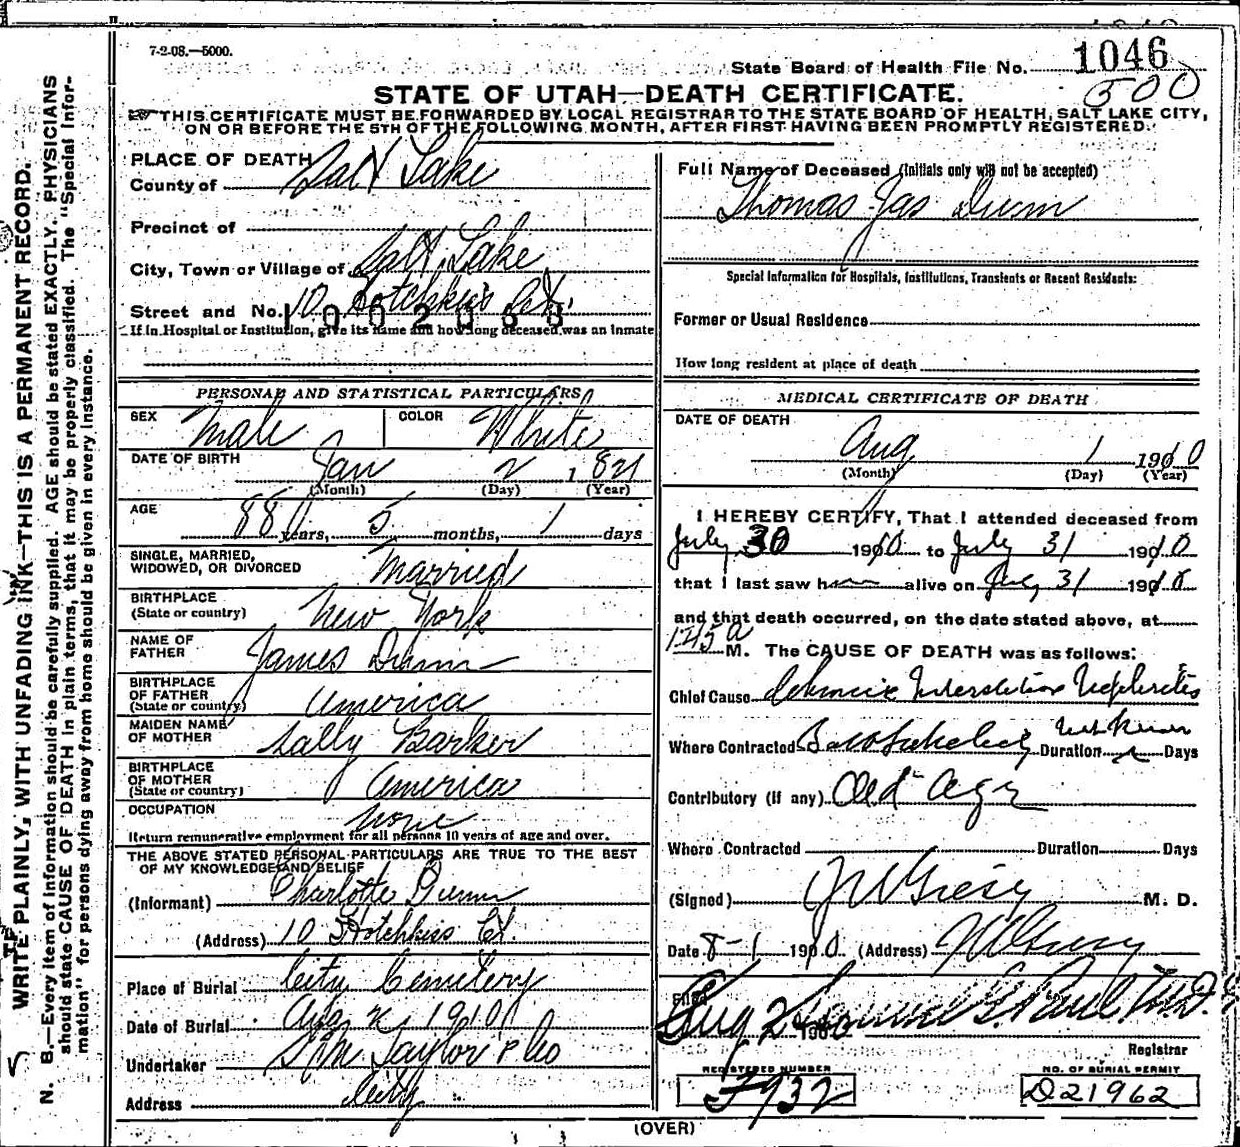 7-2-08.—5000.
State Board of Health File No. 1046
500
STATE OF UTAH—DEATH CERTIFICATE.
THIS CERTIFICATE MUST BE FORWARDED BY LOCAL REGISTRAR TO THE STATE BOARD OF HEALTH, SALT LAKE CITY,
ON OR BEFORE THE 5TH OF THE FOLLOWING MONTH, AFTER FIRST HAVING BEEN PROMPTLY REGISTERED.
WRITE PLAINLY, WITH UNFADING INK—THIS IS A PERMANENT RECORD.
N. B.—Every item of information should be carefully supplied. AGE should be stated EXACTLY. PHYSICIANS
should state CAUSE OF DEATH in plain terms, that it may be properly classified. The "Special Infor-
mation" for persons dying away from home should be given in every instance.
PLACE OF DEATH
County of Salt Lake
Precinct of
City, Town or Village of Salt Lake
Street and No. 10 Hotchkiss Ct.
If in Hospital or Institution, give its name and how long deceased was an inmate
PERSONAL AND STATISTICAL PARTICULARS
SEX Male COLOR White
DATE OF BIRTH Jan 2 1821
(Month) (Day) (Year)
AGE 88 years, 5 months, 1 days
SINGLE, MARRIED,
WIDOWED, OR DIVORCED Married
BIRTHPLACE
(State or country) New York
NAME OF
FATHER James Dunn
BIRTHPLACE
OF FATHER
(State or country) America
MAIDEN NAME
OF MOTHER Sally Barker
BIRTHPLACE
OF MOTHER
(State or country) America
OCCUPATION none
Return remunerative employment for all persons 10 years of age and over.
THE ABOVE STATED PERSONAL PARTICULARS ARE TRUE TO THE BEST
OF MY KNOWLEDGE AND BELIEF
(Informant) Charlotte Dunn
(Address) 10 Hotchkiss Ct.
Place of Burial City Cemetery
Date of Burial Aug 2 1910
Undertaker S M Taylor & Co
Address City
Full Name of Deceased (Initials only will not be accepted)
Thomas Jas Dunn
Special Information for Hospitals, Institutions, Transients or Recent Residents:
Former or Usual Residence
How long resident at place of death
MEDICAL CERTIFICATE OF DEATH
DATE OF DEATH
Aug 1 1910
(Month) (Day) (Year)
I HEREBY CERTIFY, That I attended deceased from
July 30 1910 to July 31 1910
that I last saw him alive on July 31 1910
and that death occurred, on the date stated above, at
1215 a M. The CAUSE OF DEATH was as follows:
Chief Cause Chronic Interstitial Nephritis
Where Contracted Salt Lake City Duration not known Days
Contributory (if any) Old Age
Where Contracted Duration Days
(Signed) M. D.
Date 8-1 1910 (Address)
Filed Aug 2 1910 Samuel G. Paul M.D.
Registrar
REGISTERED NUMBER
F932
NO. OF BURIAL PERMIT
D21962
(OVER)